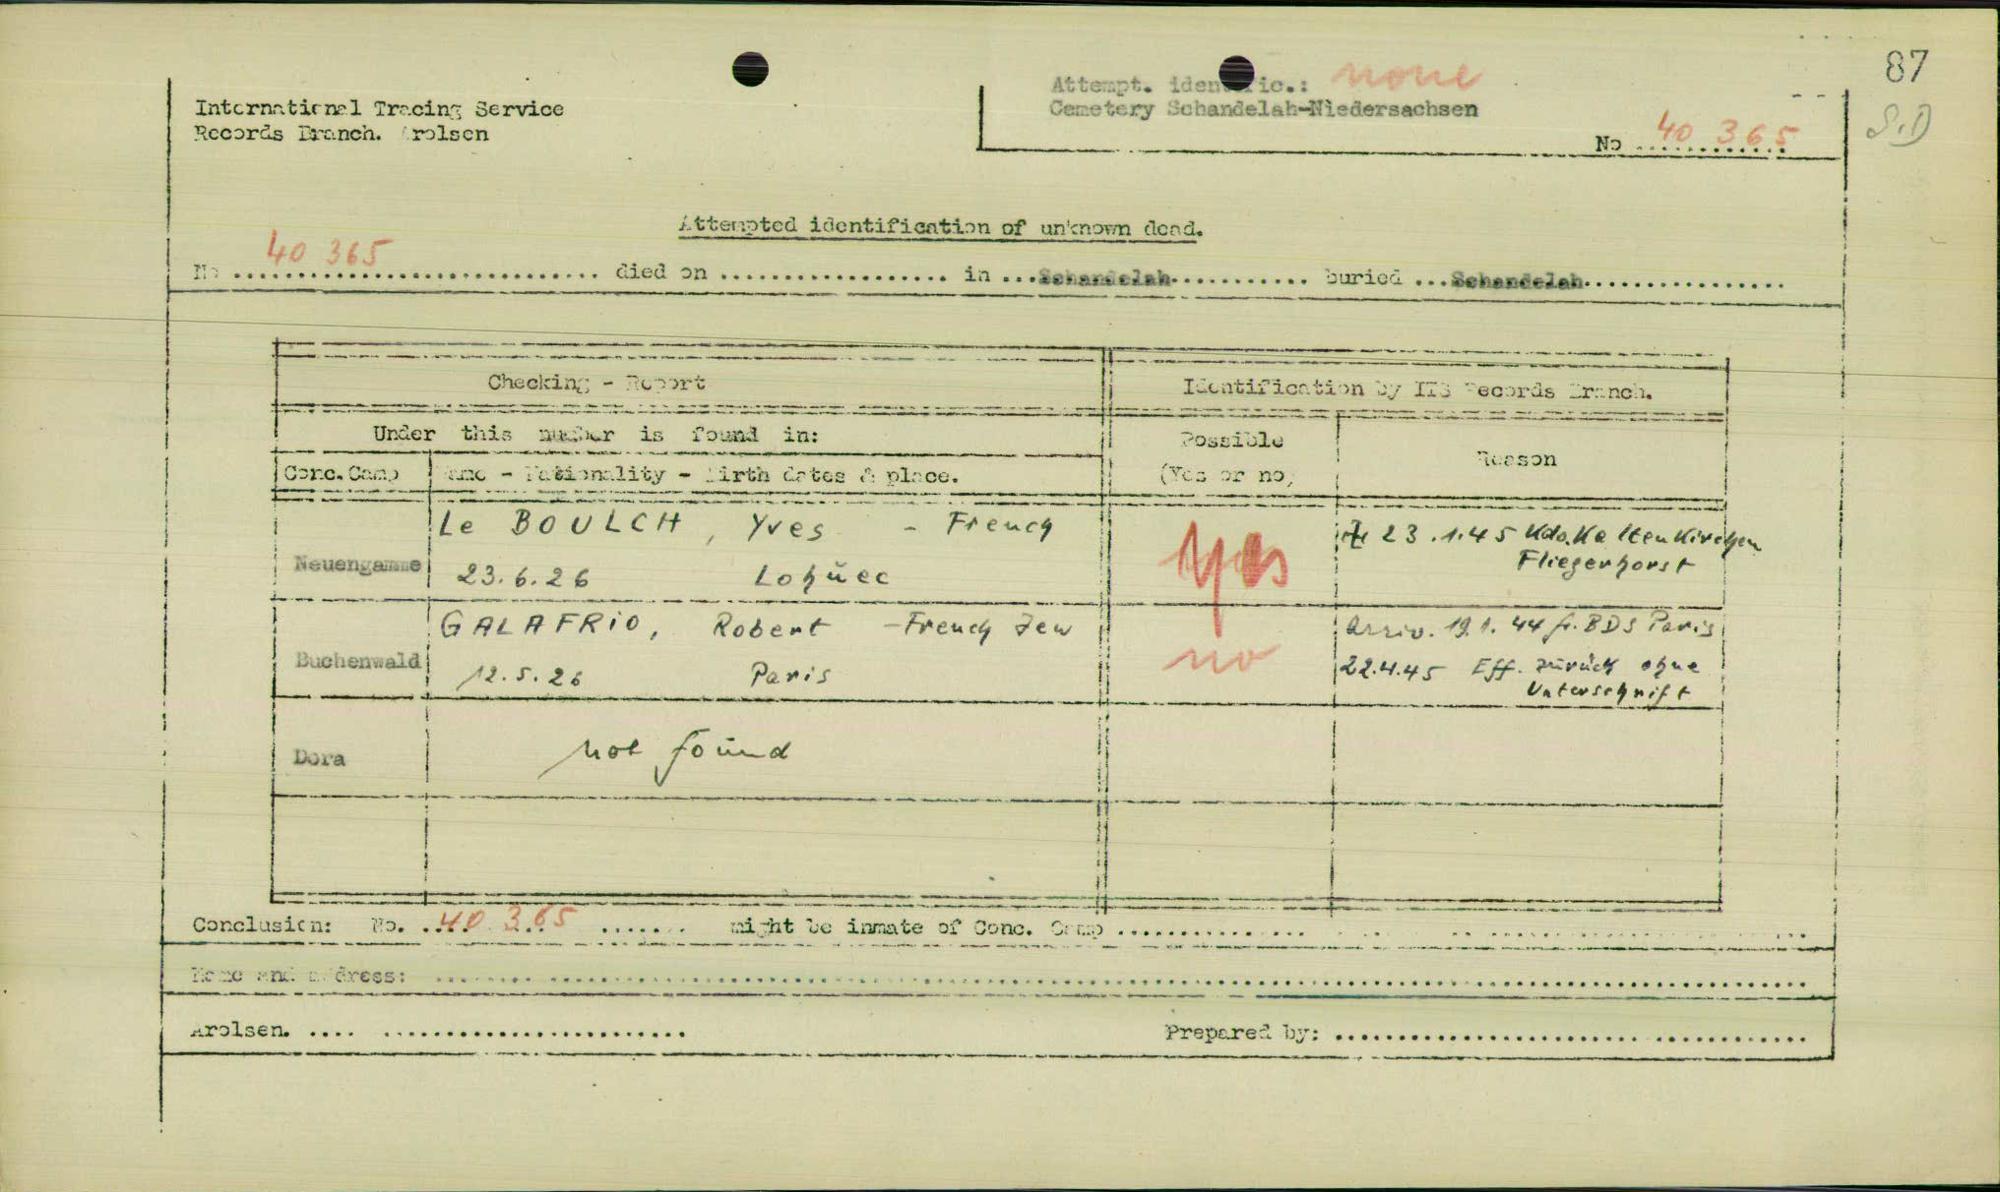 87
S.D
Attempt. identific.: none
Cemetery Schandelah-Niedersachsen
No 40 365
International Tracing Service
Records Branch. Arolsen
Attempted identification of unknown dead.
No 40 365 died on in Schandelah buried Schandelah
Checking - Report
Identification by ITS Records Branch.
Under this number is found in:
Possible
(Yes or no)
Reason
Conc.Camp
Name - Nationality - Birth dates & place.
Neuengamme
Le BOULCH, Yves - French
23.6.26 Lohuec
yes
23.1.45 Kdo. Kaltenkirchen
Fliegerhorst
Buchenwald
GALAFRIO, Robert - French Jew
12.5.26 Paris
no
Arriv. 19.1.44 fr. BDS Paris
22.4.45 Eff. zurück ohne
Unterschrift
Dora
not found
Conclusion: No. 40 365 might be inmate of Conc. Camp
Name and address:
Arolsen.
Prepared by: